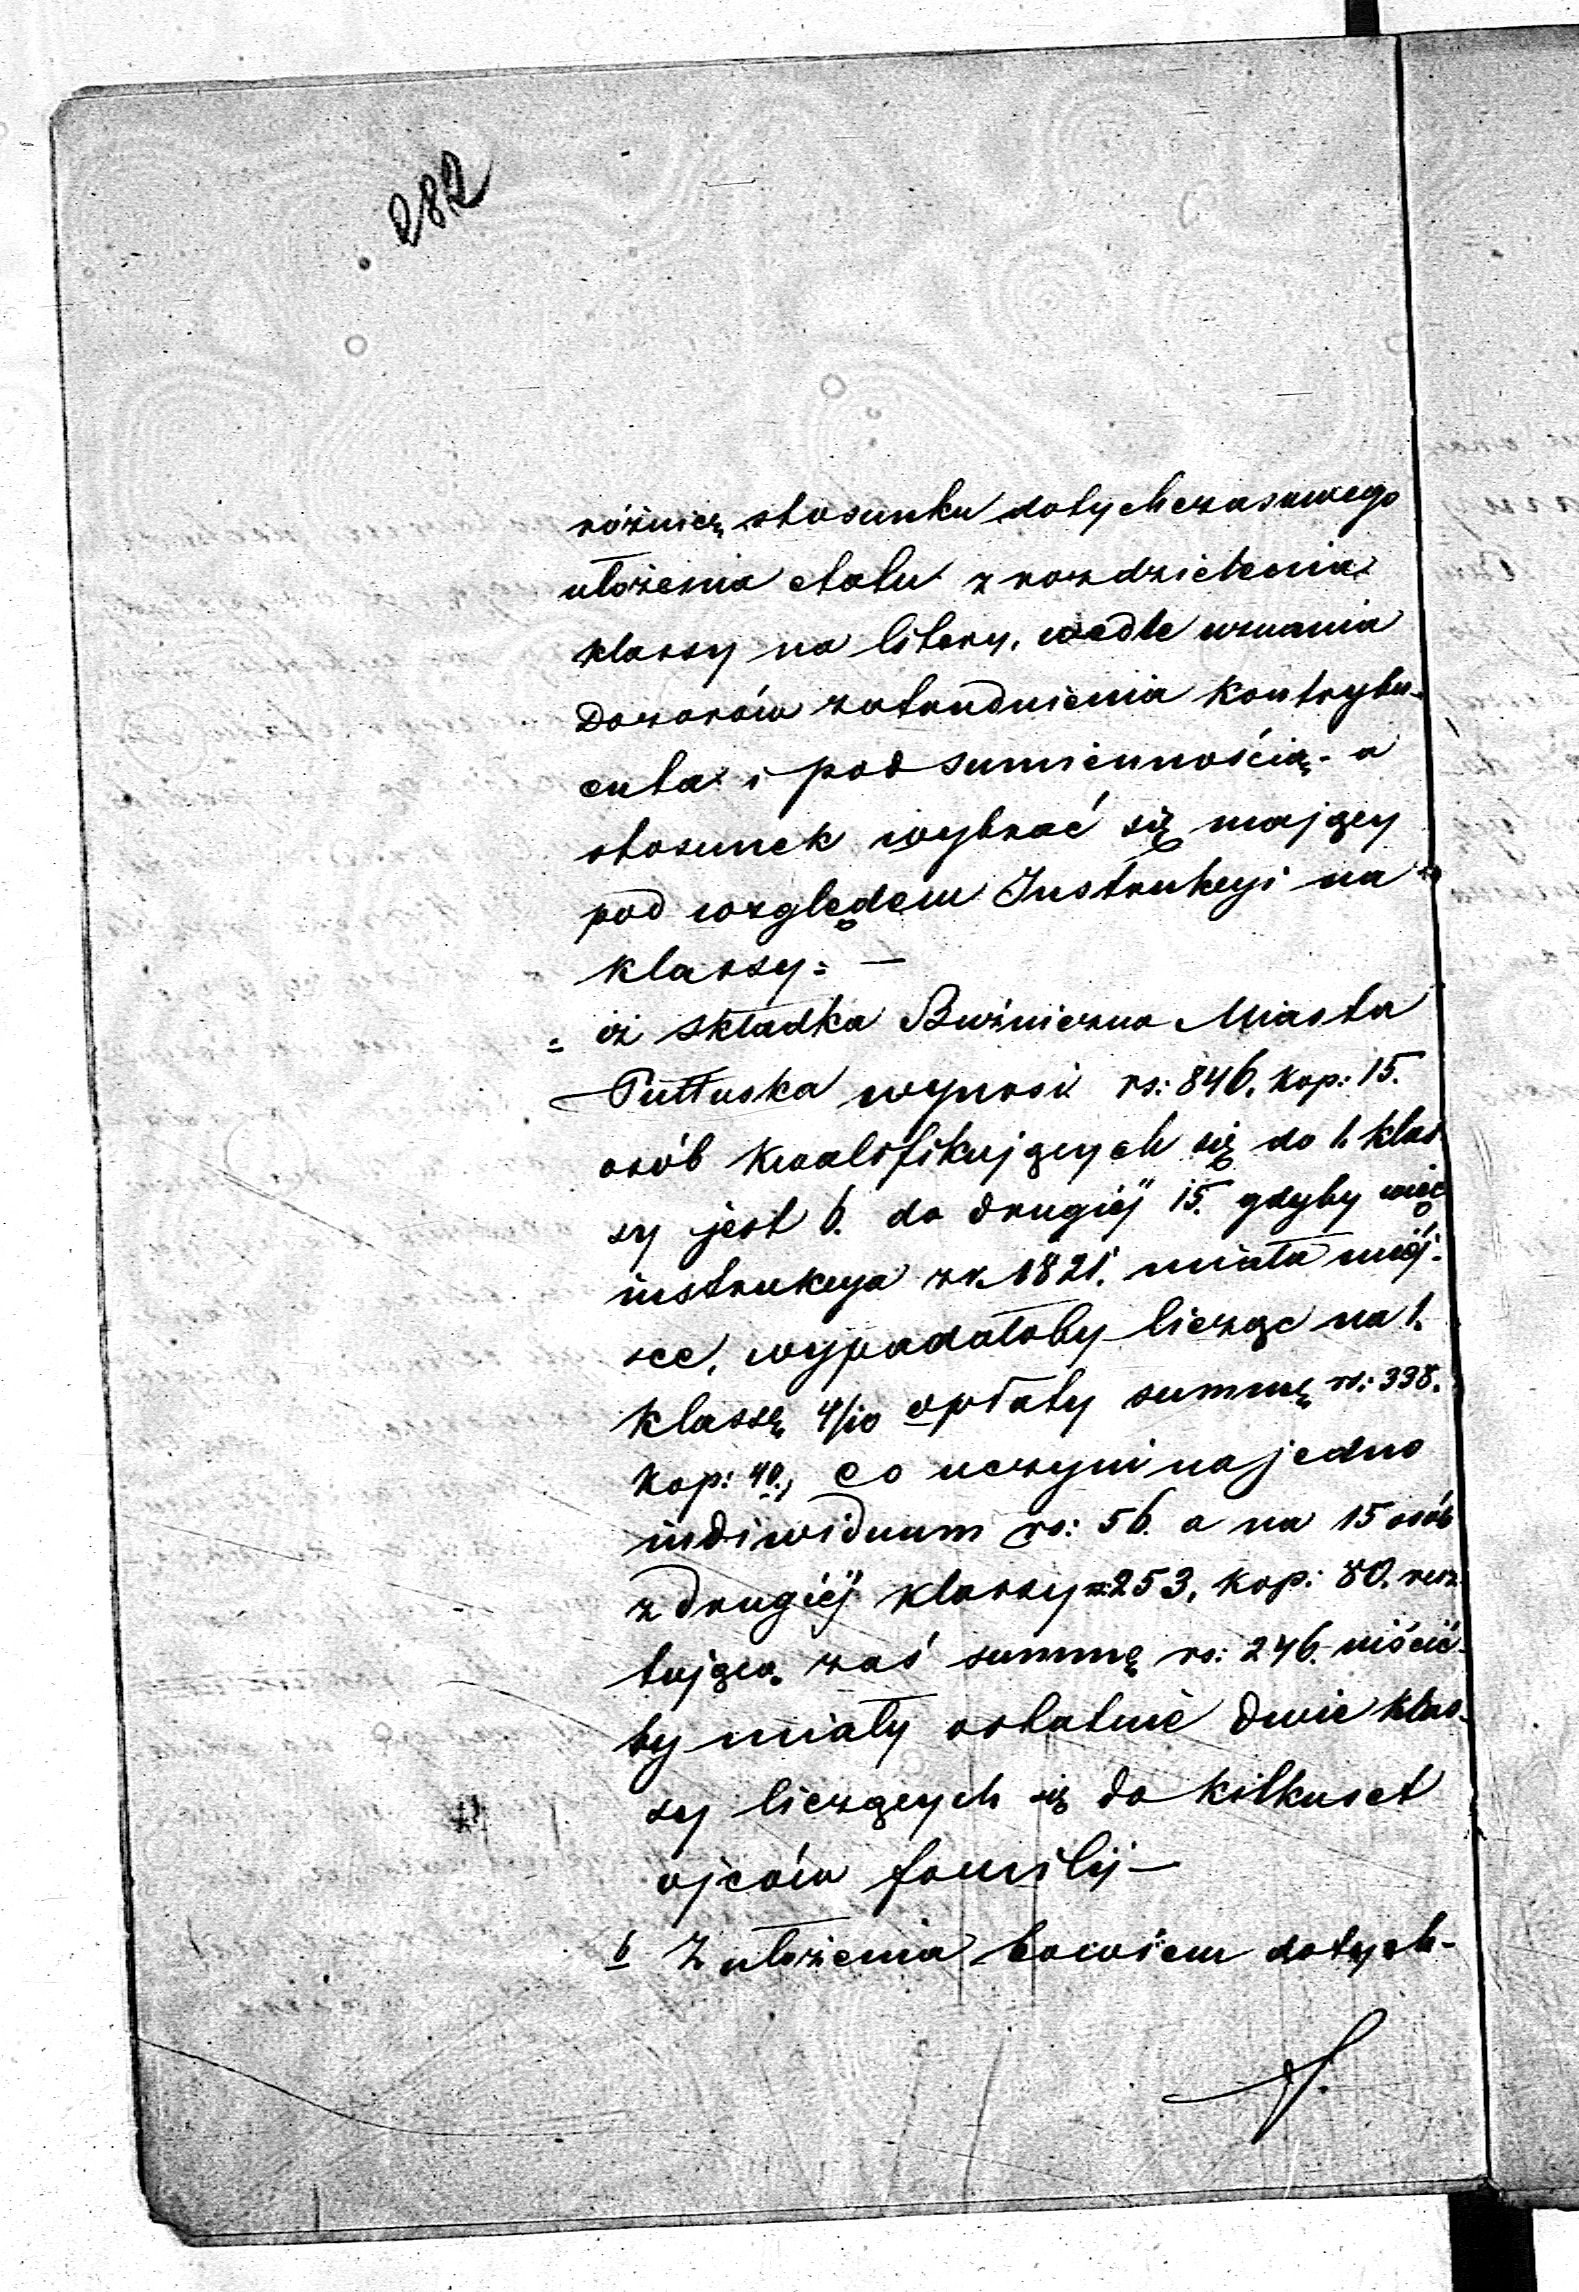 282
różnicę stosunku dotychczasowego
ułożenia etatu z rozdzielenia
klassy na litery, wedle uznania
Dozorów zatrudnienia kontrybu-
enta i pod sumiennością. a
stosunek wybrać się mający
pod względem Instrukcyi na
klassy: —
= iż składka Bużniczna Miasta
Pułtuska wynosi rs: 846. kop: 15.
osób kwalifikujących się do 1. klas
sy jest 6. do drugiéj 15. gdyby więc
instrukcya z r. 1821. miała miéj-
sce, wypadałoby licząc na 1.
klassę 4/10 opłaty summę rs: 338.
kop: 40., co uczyni na jedno
indiwiduum rs: 56. a na 15 osób
z drugiéj klassy rs: 253. kop: 80. resz
tującą zaś summę rs: 246. uiścić
by miały ostatnie dwie klas-
sy liczących się do kilkuset
ojców familij —
b Z ułożenia bowiem dotych-